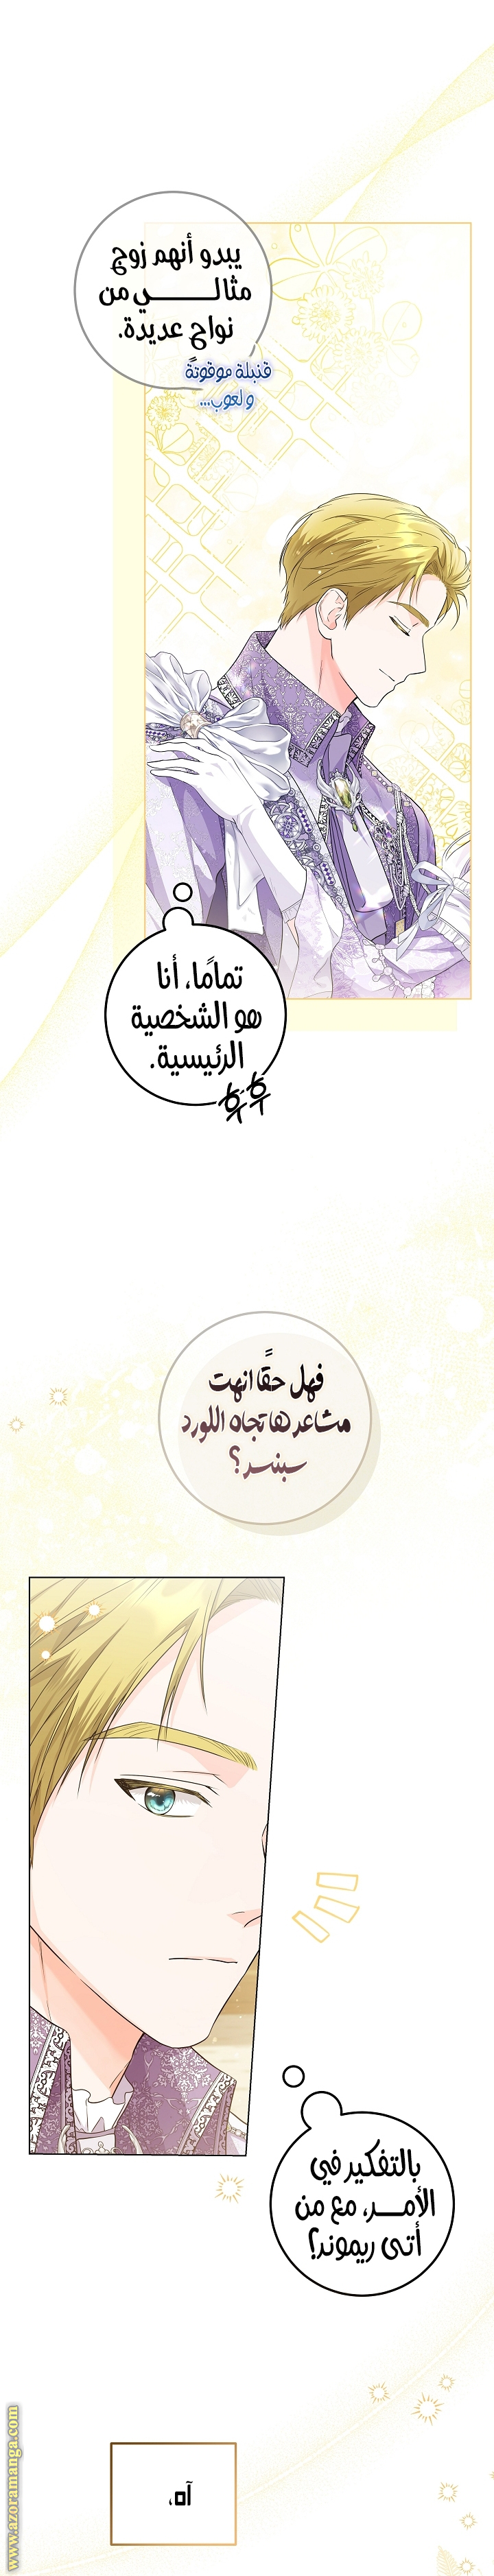 يبدو أنهم زوج
مثالــــــــي من
نواحٍ عديدة.
قنبلة موقوتةً
و لعوب...
تمامًا، أنا
هو الشخصية
الرئيسية.
흣흣
فهل حقًا انهت
مشاعرها تجاه اللورد
سبنسر؟
بالتفكير في
الأمـــر، مع من
أتى ريموند؟
آه،
www.azoramanga.com